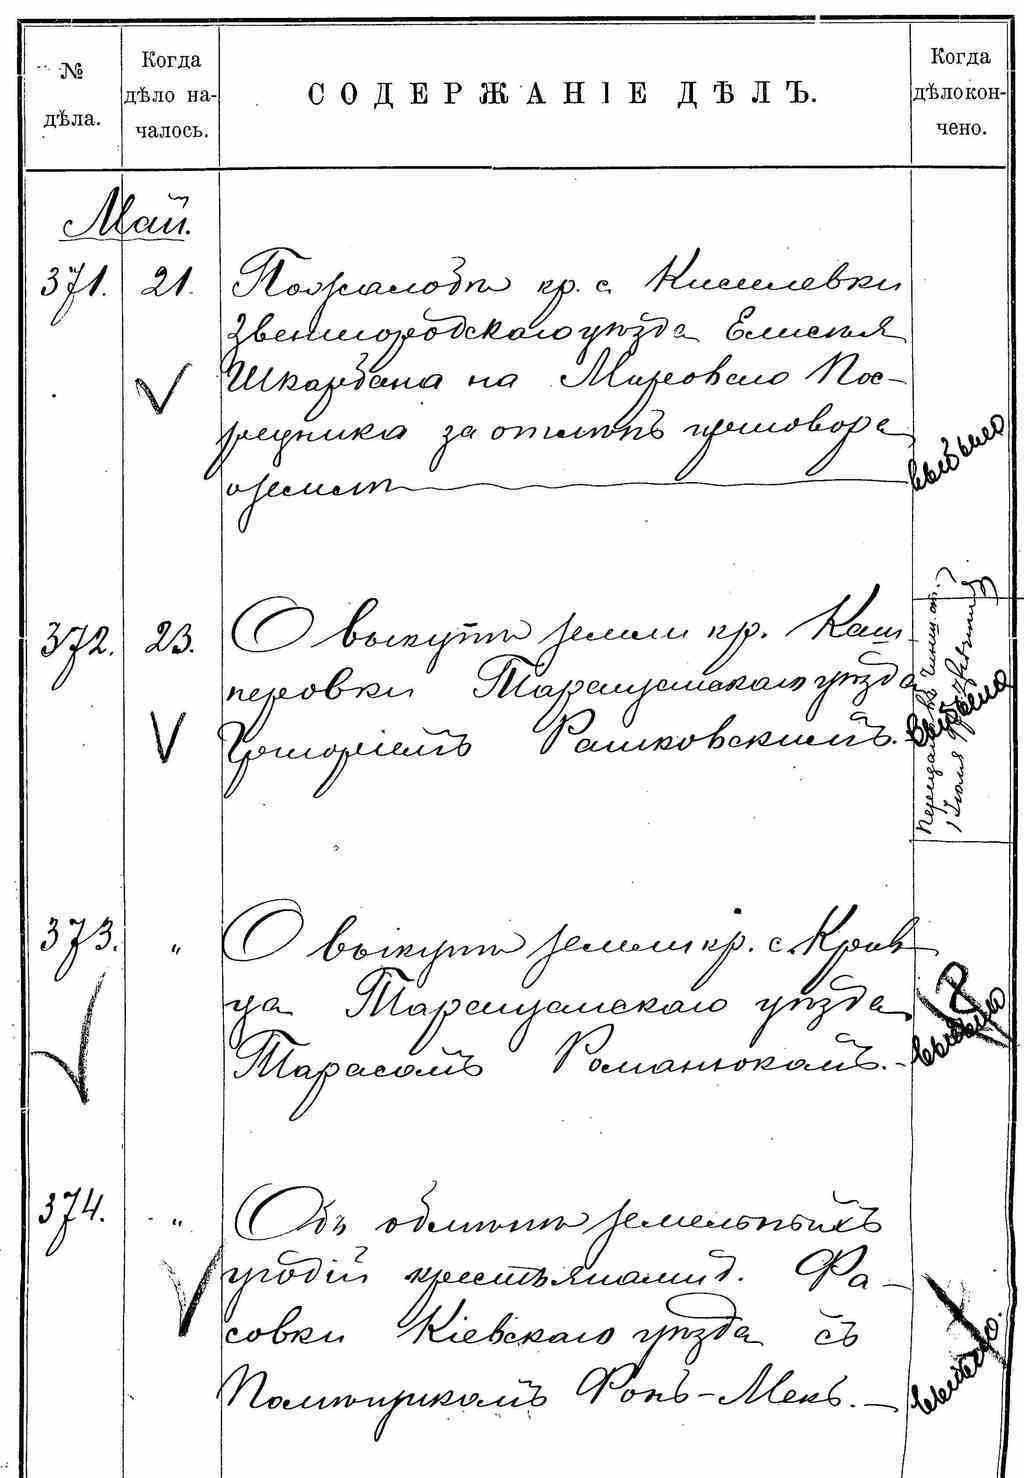 № дѣла.
Когда дѣло на-
чалось.
СОДЕРЖАНІЕ ДѢЛЪ.
Когда
дѣло кон-
чено.
Май.
371. 21. По жалобѣ кр. с. Киселевки
Звенигородскаго уѣзда Елисѣя
Шкарбана на Мироваго Пос-
редника за отмѣнъ приговора
о землѣ
выбыло
372. 23. О выкупѣ земли кр. Каш-
перовки Таращанскаго уѣзда
Григоріемъ Рашковскимъ.
выбыло
373. „ О выкупѣ земли кр. с. Крив
ца Таращанскаго уѣзда
Тарасомъ Романюкомъ.-
выбыло
374. „ Объ обмѣнѣ земельныхъ
угодій крестьянами д. Фа-
совки Кіевскаго уѣзда съ
Помѣщикомъ Фонъ-Мекъ.-
выбыло.